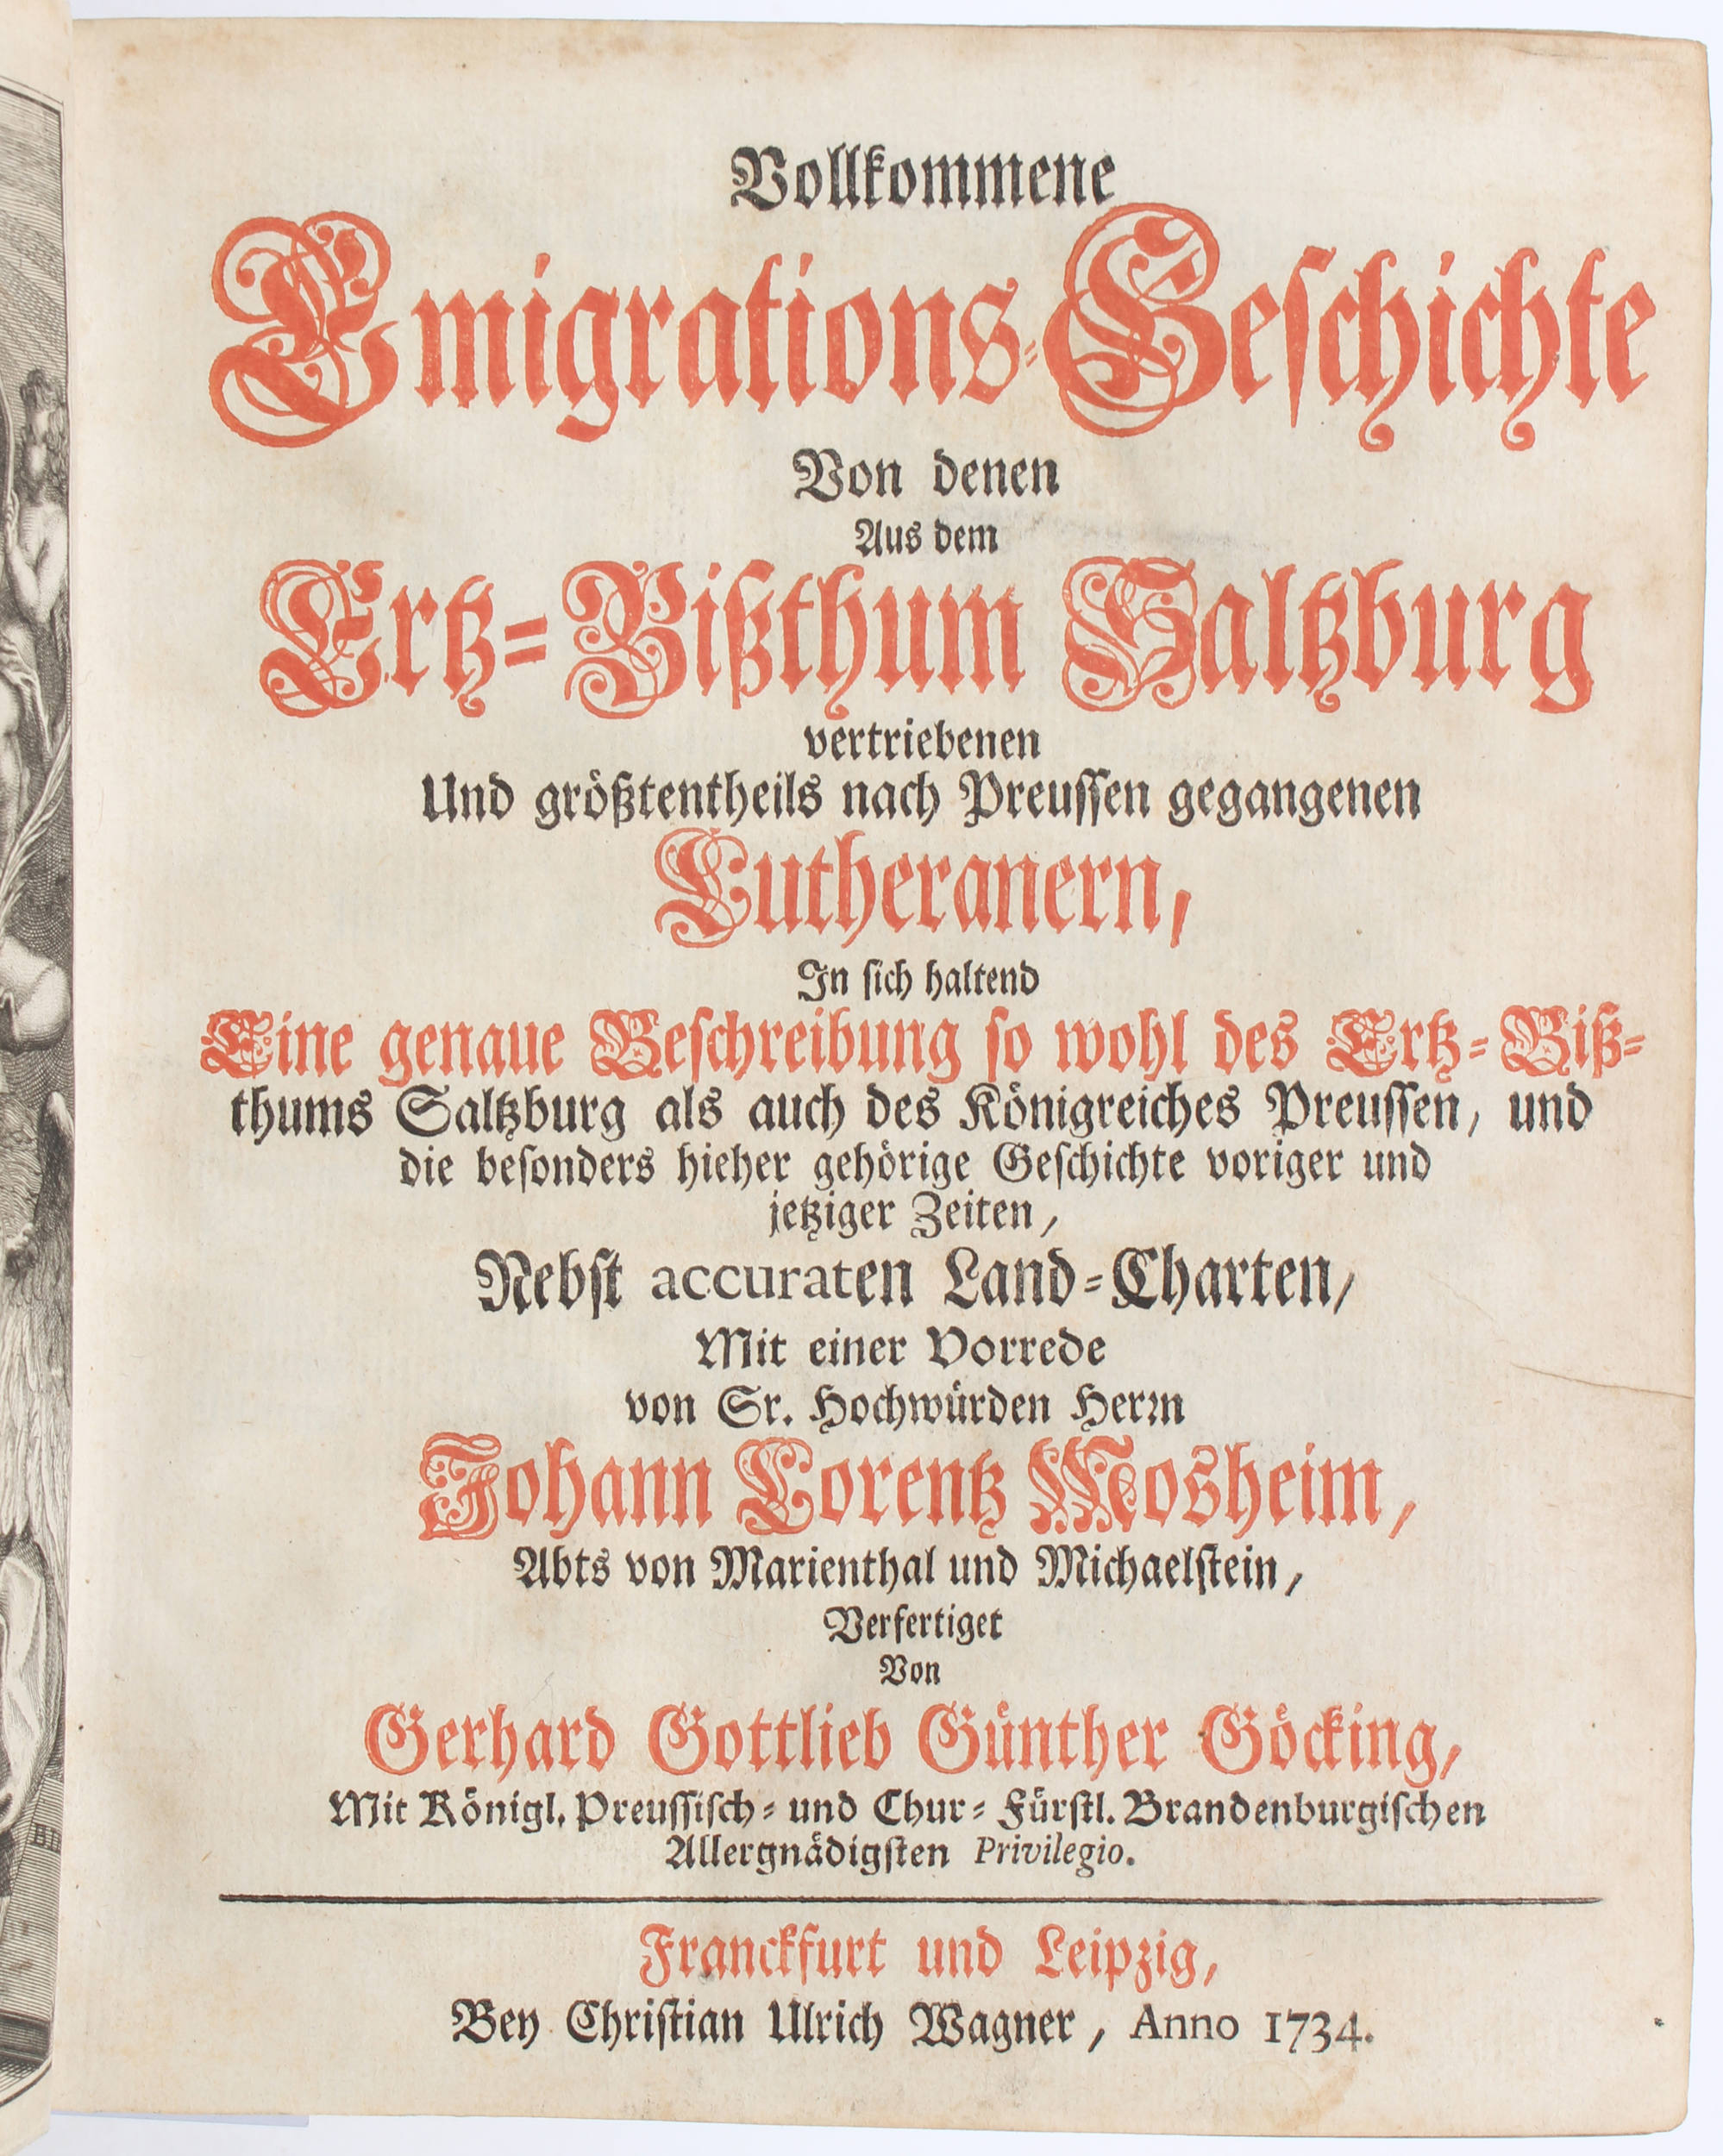 Vollkommene
Emigrations-Geschichte
Von denen
Aus dem
Ertz-Bißthum Saltzburg
vertriebenen
Und größtentheils nach Preussen gegangenen
Lutheranern,
In sich haltend
Eine genaue Beschreibung so wohl des Ertz-Biß-
thums Saltzburg als auch des Königreiches Preussen, und
die besonders hieher gehörige Geschichte voriger und
jetziger Zeiten,
Nebst accuraten Land-Charten,
Mit einer Vorrede
von Sr. Hochwürden Herrn
Johann Lorentz Mosheim,
Abts von Marienthal und Michaelstein,
Verfertiget
Von
Gerhard Gottlieb Günther Göcking,
Mit Königl. Preussisch- und Chur-Fürstl. Brandenburgischen
Allergnädigsten Privilegio.
Franckfurt und Leipzig,
Bey Christian Ulrich Wagner, Anno 1734.